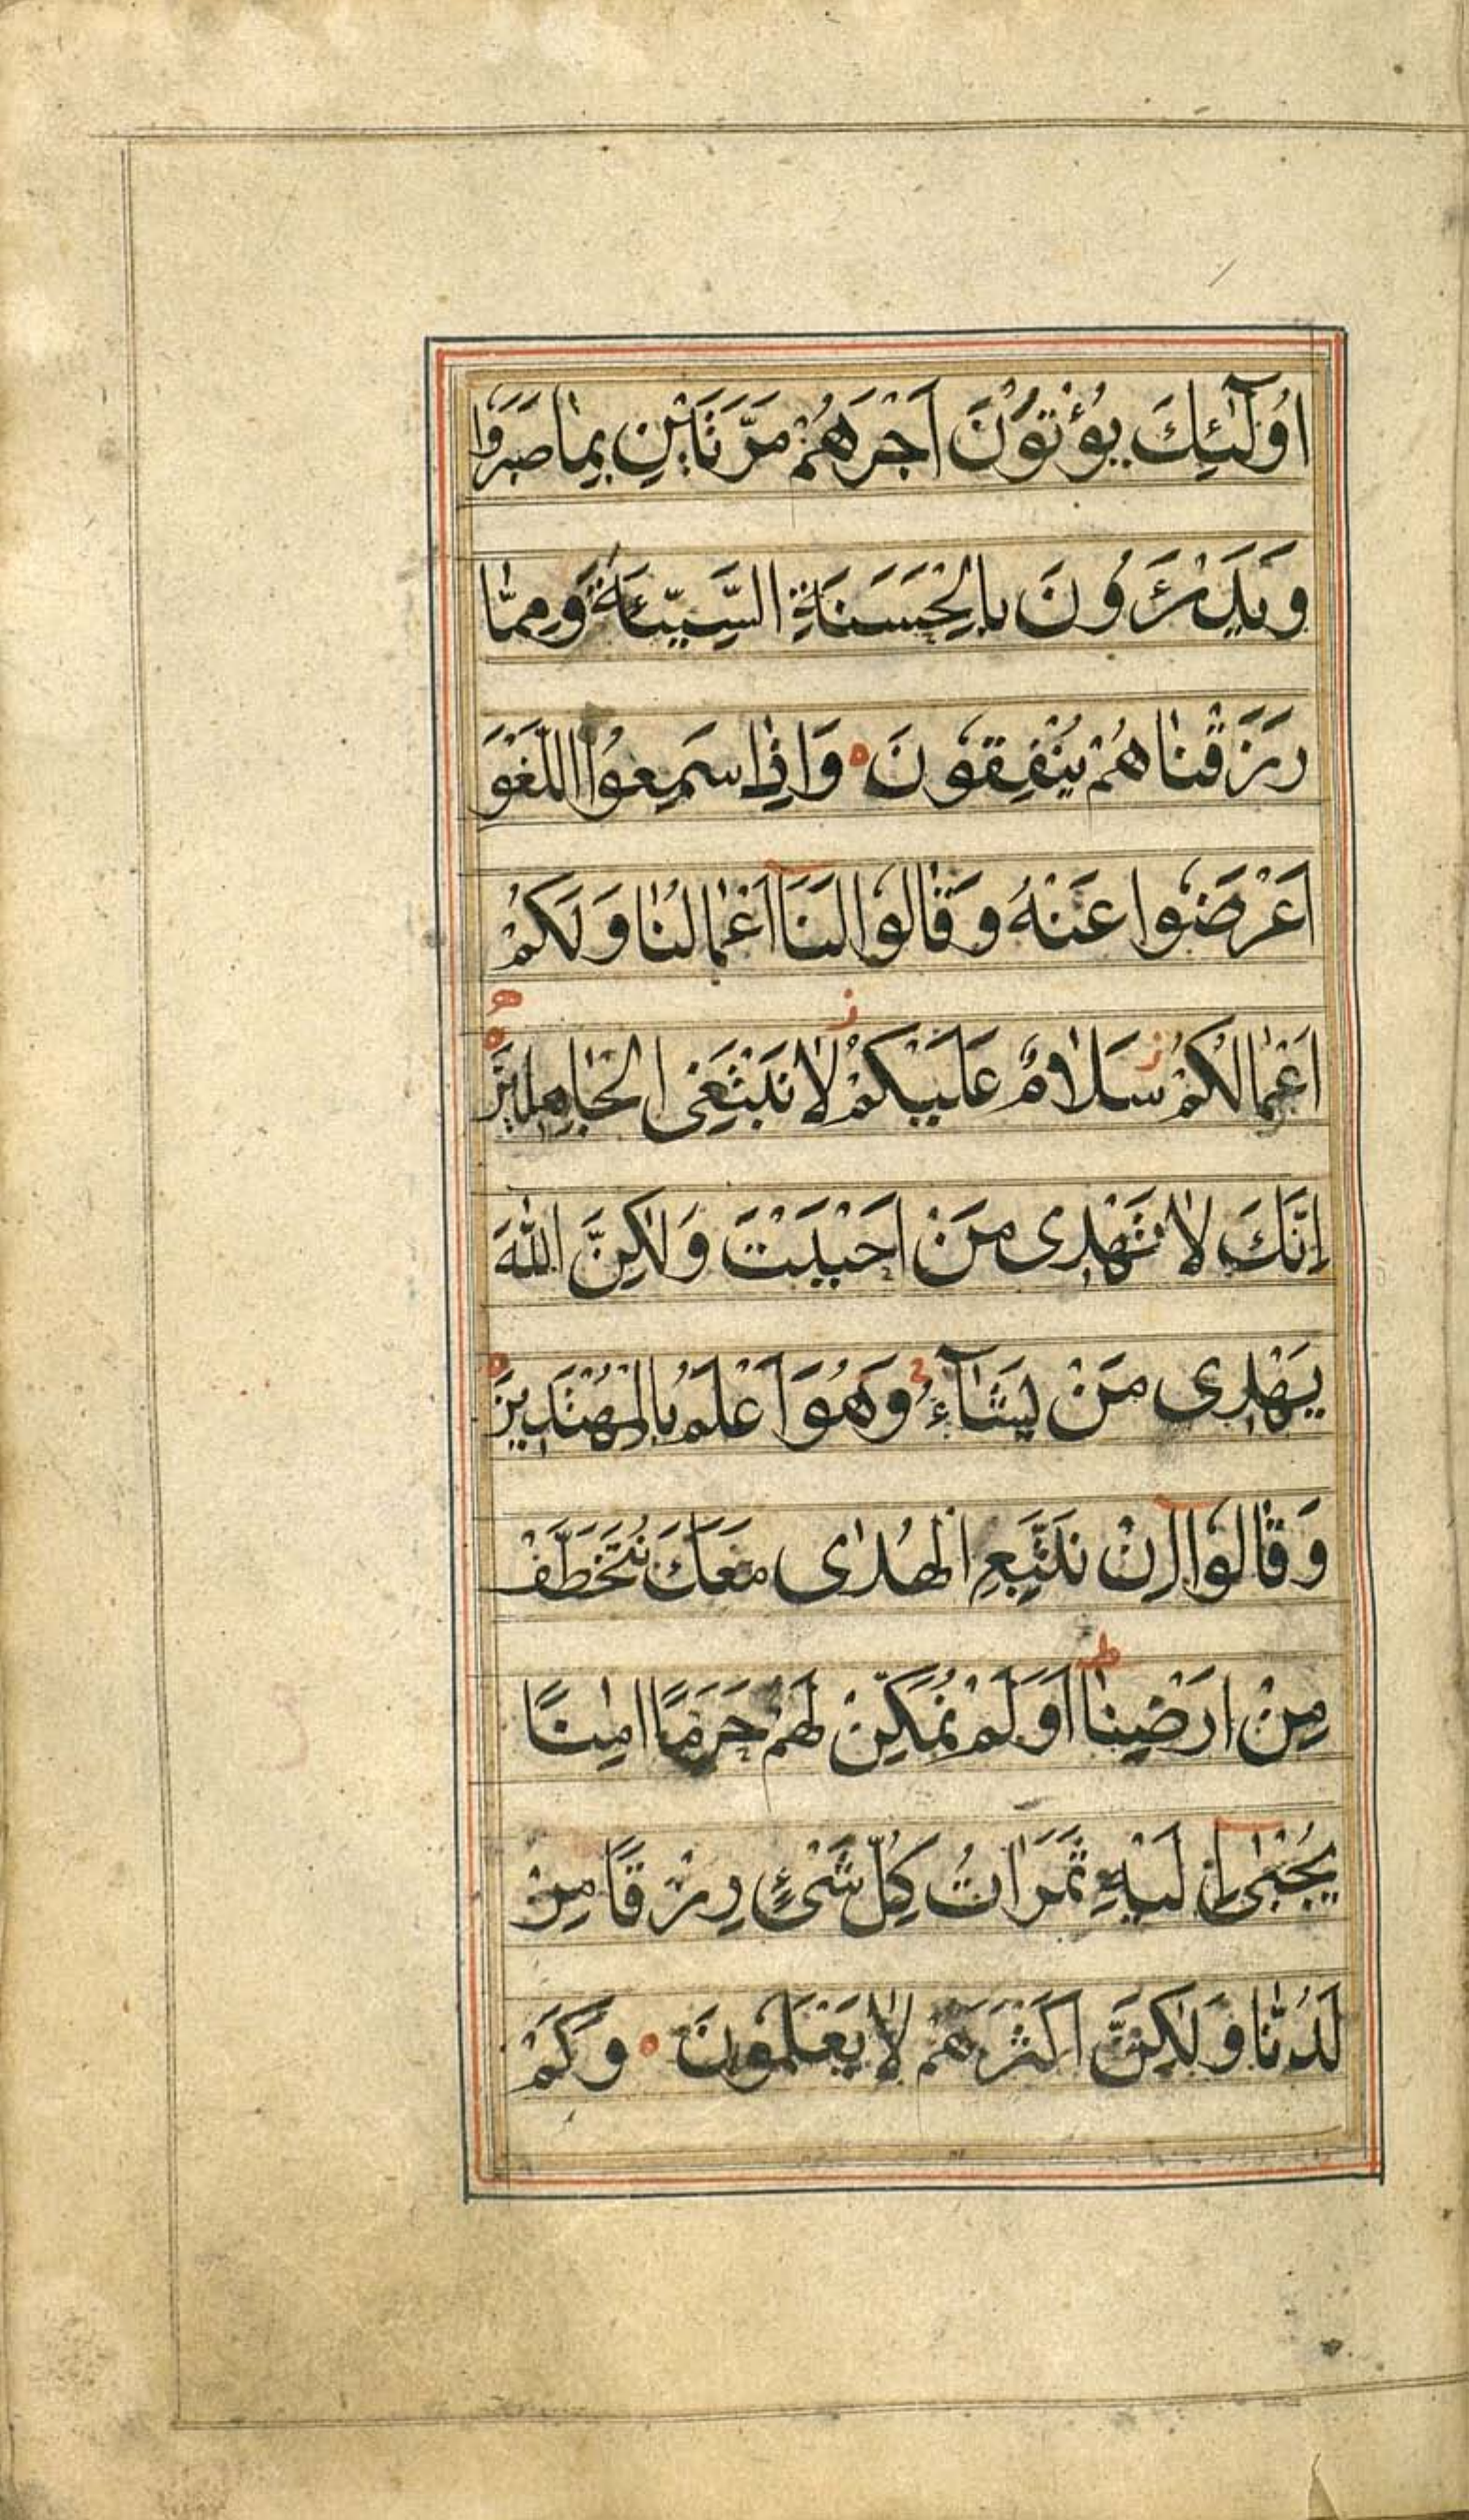 اُولٰٓئِكَ يُؤْتَوْنَ اَجْرَهُمْ مَرَّتَيْنِ بِمٰا صَبَرُوا
وَيَدْرَؤُنَ بِالْحَسَنَةِ السَّيِّئَةَ وَمِمّٰا
رَزَقْنٰاهُمْ يُنْفِقُونَ ه وَاِذٰا سَمِعُوا اللَّغْوَ
اَعْرَضُوا عَنْهُ وَقٰالُوا لَنَآ اَعْمٰالُنٰا وَلَكُمْ
اَعْمٰالُكُمْ ز سَلٰامٌ عَلَيْكُمْ ز لٰا نَبْتَغِى الْجٰاهِلِينَ ه
اِنَّكَ لٰا تَهْدِى مَنْ اَحْبَبْتَ وَلٰكِنَّ اللّٰهَ
يَهْدِى مَنْ يَشٰآءُ ج وَهُوَ اَعْلَمُ بِالْمُهْتَدِينَ ه
وَقٰالُوٓا اِنْ نَتَّبِعِ الْهُدٰى مَعَكَ نُتَخَطَّفْ
مِنْ اَرْضِنٰا ط اَوَلَمْ نُمَكِّنْ لَهُمْ حَرَمًا اٰمِنًا
يُجْبٰىٓ اِلَيْهِ ثَمَرٰاتُ كُلِّ شَىْءٍ رِزْقًا مِنْ
لَدُنّٰا وَلٰكِنَّ اَكْثَرَهُمْ لٰا يَعْلَمُونَ ه وَكَمْ